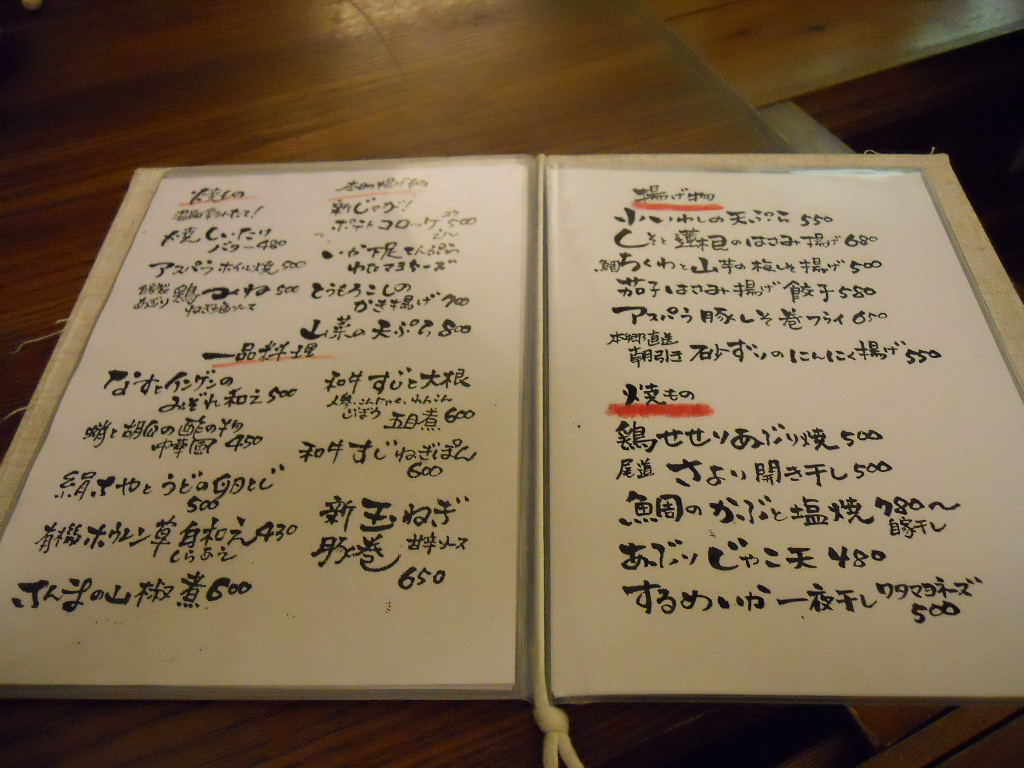 焼もの
焼しいたけ
バター 480
アスパラホイル焼 500
あぶり 鶏つくね 500
本日の揚げもの
新じゃが!
ポテトコロッケ 500
いか下足てんぷら
わたマヨネーズ
とうもろこしの
かき揚げ 700
山菜の天ぷら 800
一品料理
なすとインゲンの
みぞれ和え 500
蛸と胡瓜の酢の物
中華風 450
絹さやとうどの卵とじ
500
有機ホウレン草白和え 430
しらあえ
さんまの山椒煮 600
和牛すじと大根
人参、こんにゃく、れんこん
ごぼう 五目煮 600
和牛すじねぎぽん
600
新玉ねぎ
豚巻 甘辛ソース
650
揚げ物
小いわしの天ぷら 550
しそと蓮根のはさみ揚げ 680
鯛ちくわと山芋の梅しそ揚げ 500
茄子はさみ揚げ餃子 580
アスパラ豚しそ巻フライ 650
本郷直送
朝引き 砂ずりのにんにく揚げ 550
焼もの
鶏せせりあぶり焼 500
尾道 さより開き干し 500
鯛のかぶと塩焼 780〜
あぶりじゃこ天 480
するめいか一夜干し ワタマヨネーズ
500